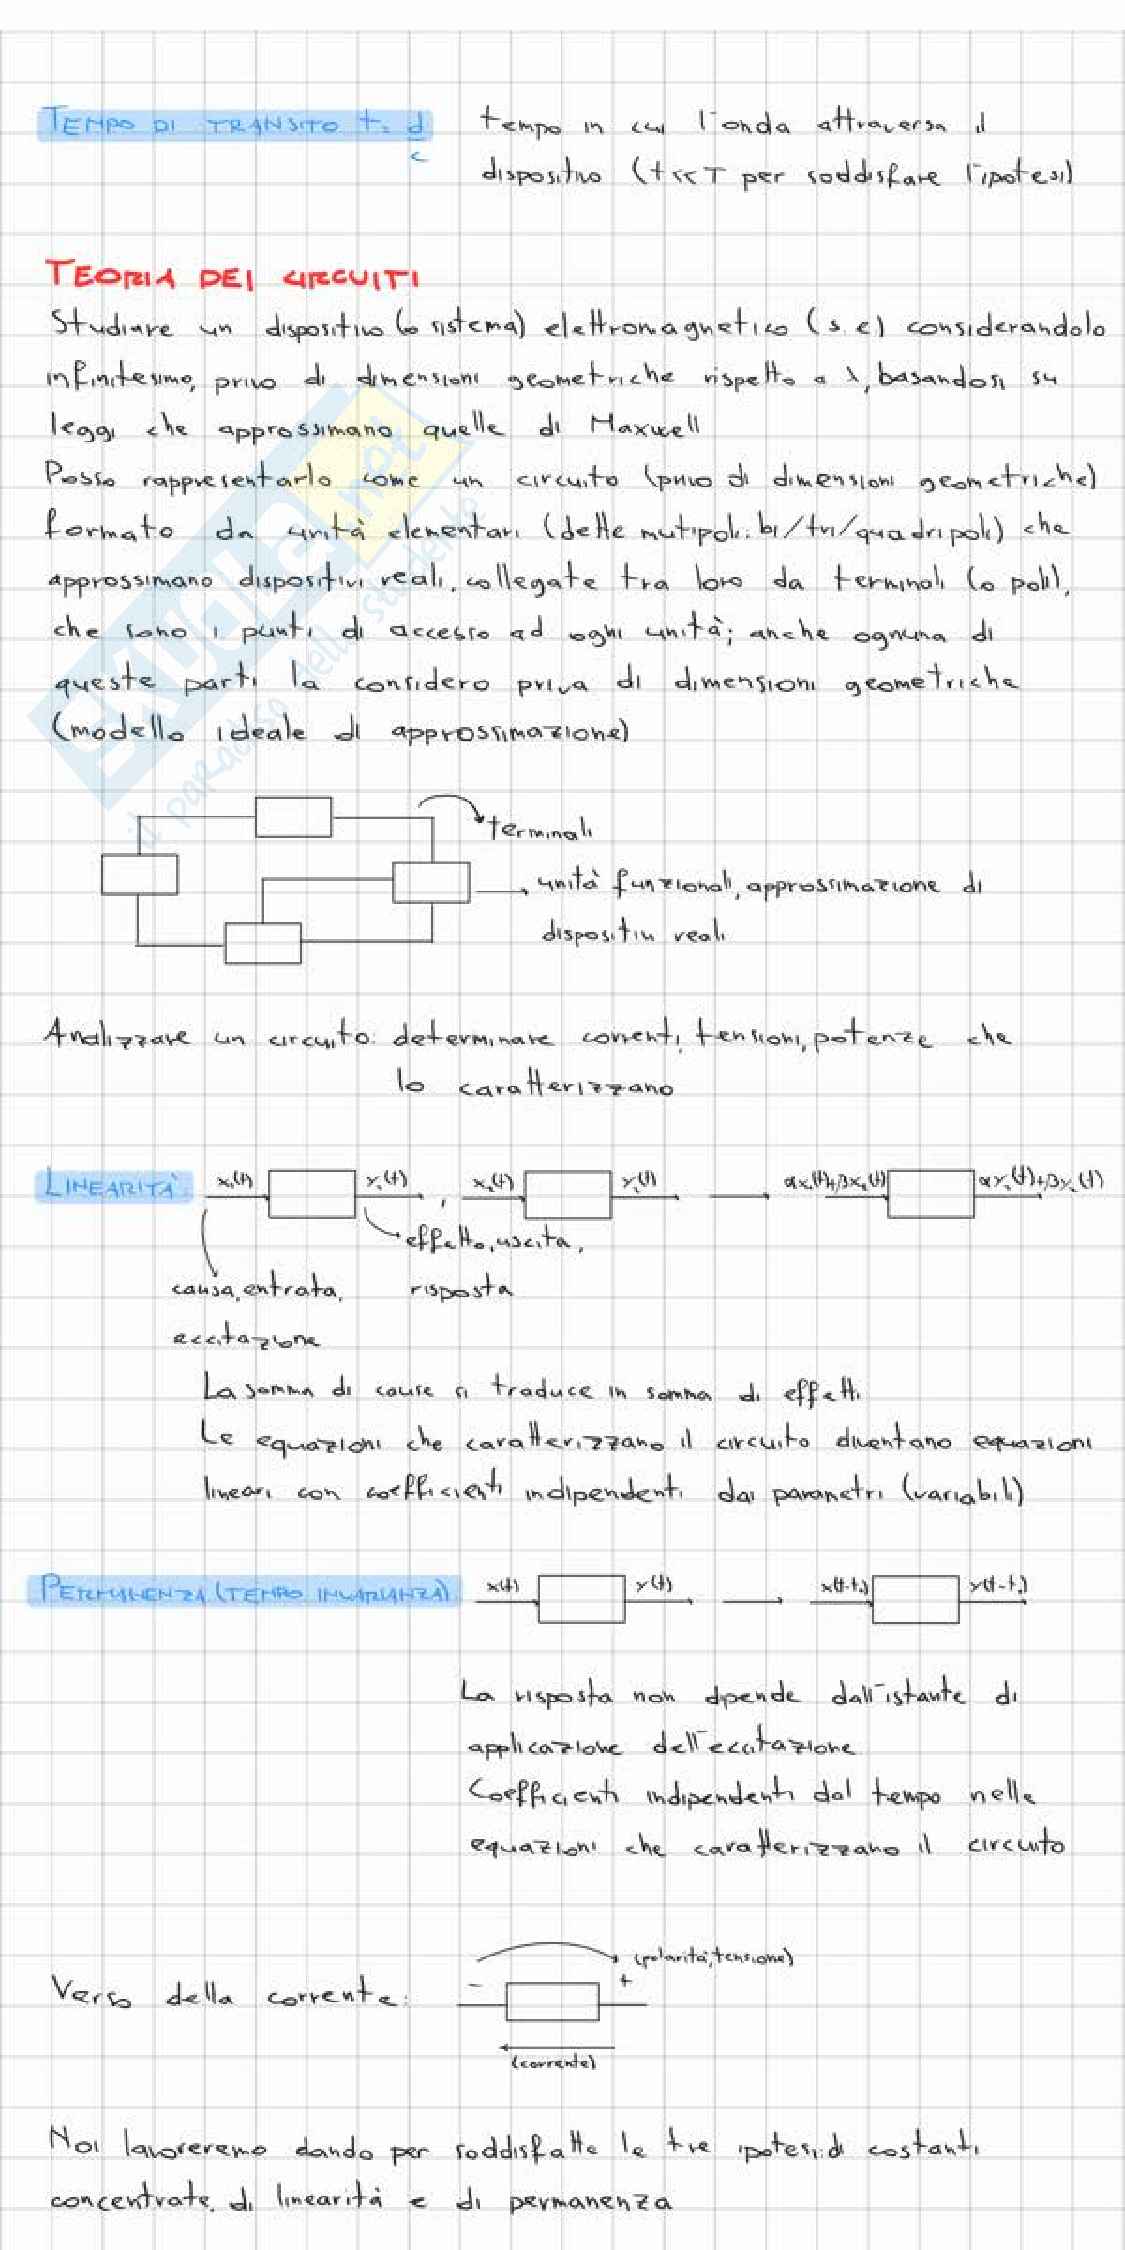 TEMPO DI TRANSITO t= d/c tempo in cui l'onda attraversa il
dispositivo (t<<T per soddisfare l'ipotesi)
TEORIA DEI CIRCUITI
Studiare un dispositivo (o sistema) elettromagnetico (s.e) considerandolo
infinitesimo, privo di dimensioni geometriche rispetto a λ, basandosi su
leggi che approssimano quelle di Maxwell
Posso rappresentarlo come un circuito (privo di dimensioni geometriche)
formato da unità elementari (dette mutipoli: bi/tri/quadripoli) che
approssimano dispositivi reali, collegate tra loro da terminali (o poli),
che sono i punti di accesso ad ogni unità; anche ognuna di
queste parti la considero priva di dimensioni geometriche
(modello ideale di approssimazione)
SKUOLA.net
il paradiso dello studente
terminali
unità funzionali, approssimazione di
dispositivi reali
Analizzare un circuito: determinare correnti, tensioni, potenze che
lo caratterizzano
LINEARITÀ: x₁(t) y₁(t) , x₂(t) y₂(t) αx₁(t)+βx₂(t) αy₁(t)+βy₂(t)
effetto, uscita,
causa, entrata, risposta
eccitazione
La somma di cause si traduce in somma di effetti
Le equazioni che caratterizzano il circuito diventano equazioni
lineari con coefficienti indipendenti dai parametri (variabili)
PERMANENZA (TEMPO INVARIANZA) x(t) y(t) x(t-t₀) y(t-t₀)
La risposta non dipende dall'istante di
applicazione dell'eccitazione
Coefficienti indipendenti dal tempo nelle
equazioni che caratterizzano il circuito
(polarità, tensione)
Verso della corrente: - +
(corrente)
Noi lavoreremo dando per soddisfatte le tre ipotesi: di costanti
concentrate, di linearità e di permanenza